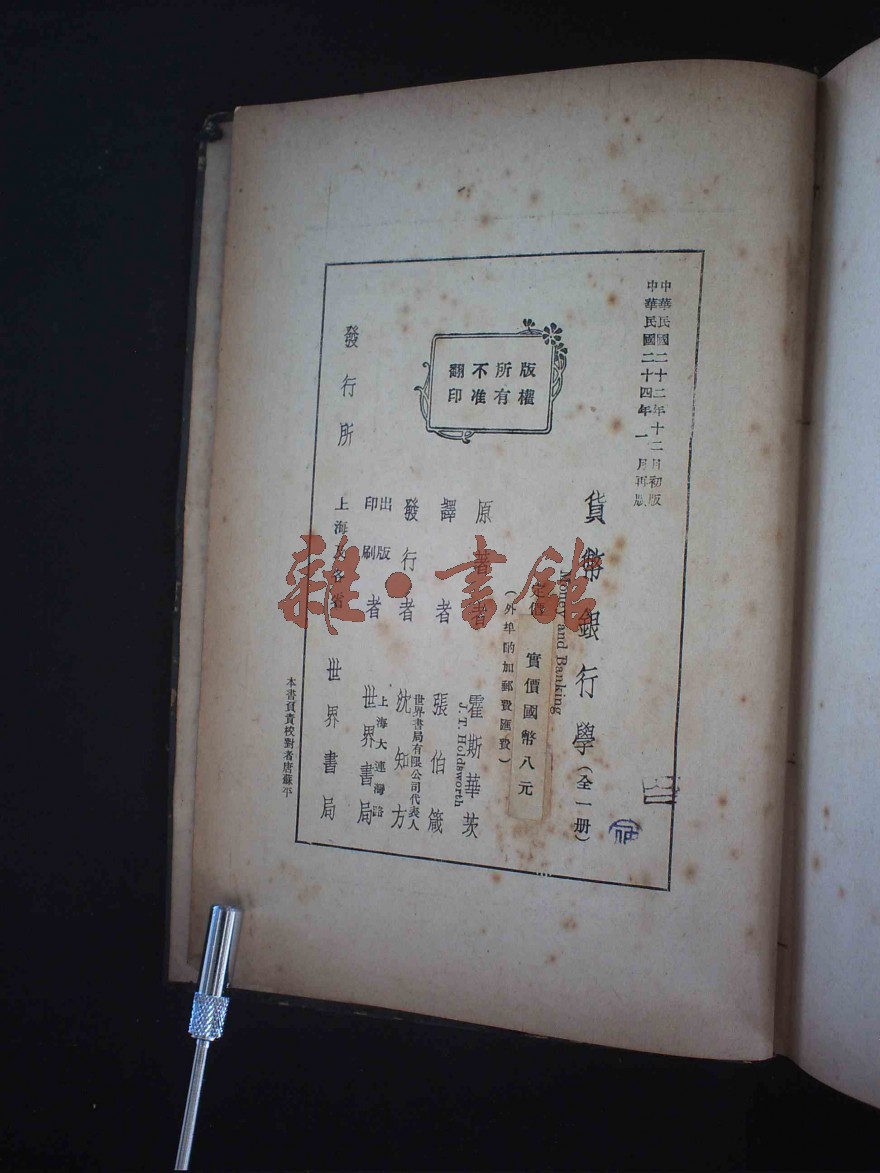 中華民國二十二年十二月初版
中華民國二十四年一月再版
版權所有
不准翻印
貨幣銀行學(全一册)
Money and Banking
定價
實價國幣八元
(外埠酌加郵費匯費)
原著者 霍斯華茨
J. T. Holdsworth
譯者 張伯箴
發行者 沈知方
世界書局有限公司代表人
出版印刷者 世界書局
上海大連灣路
發行所 上海及各省 世界書局
本書負責校對者唐蘇平
雜·書館